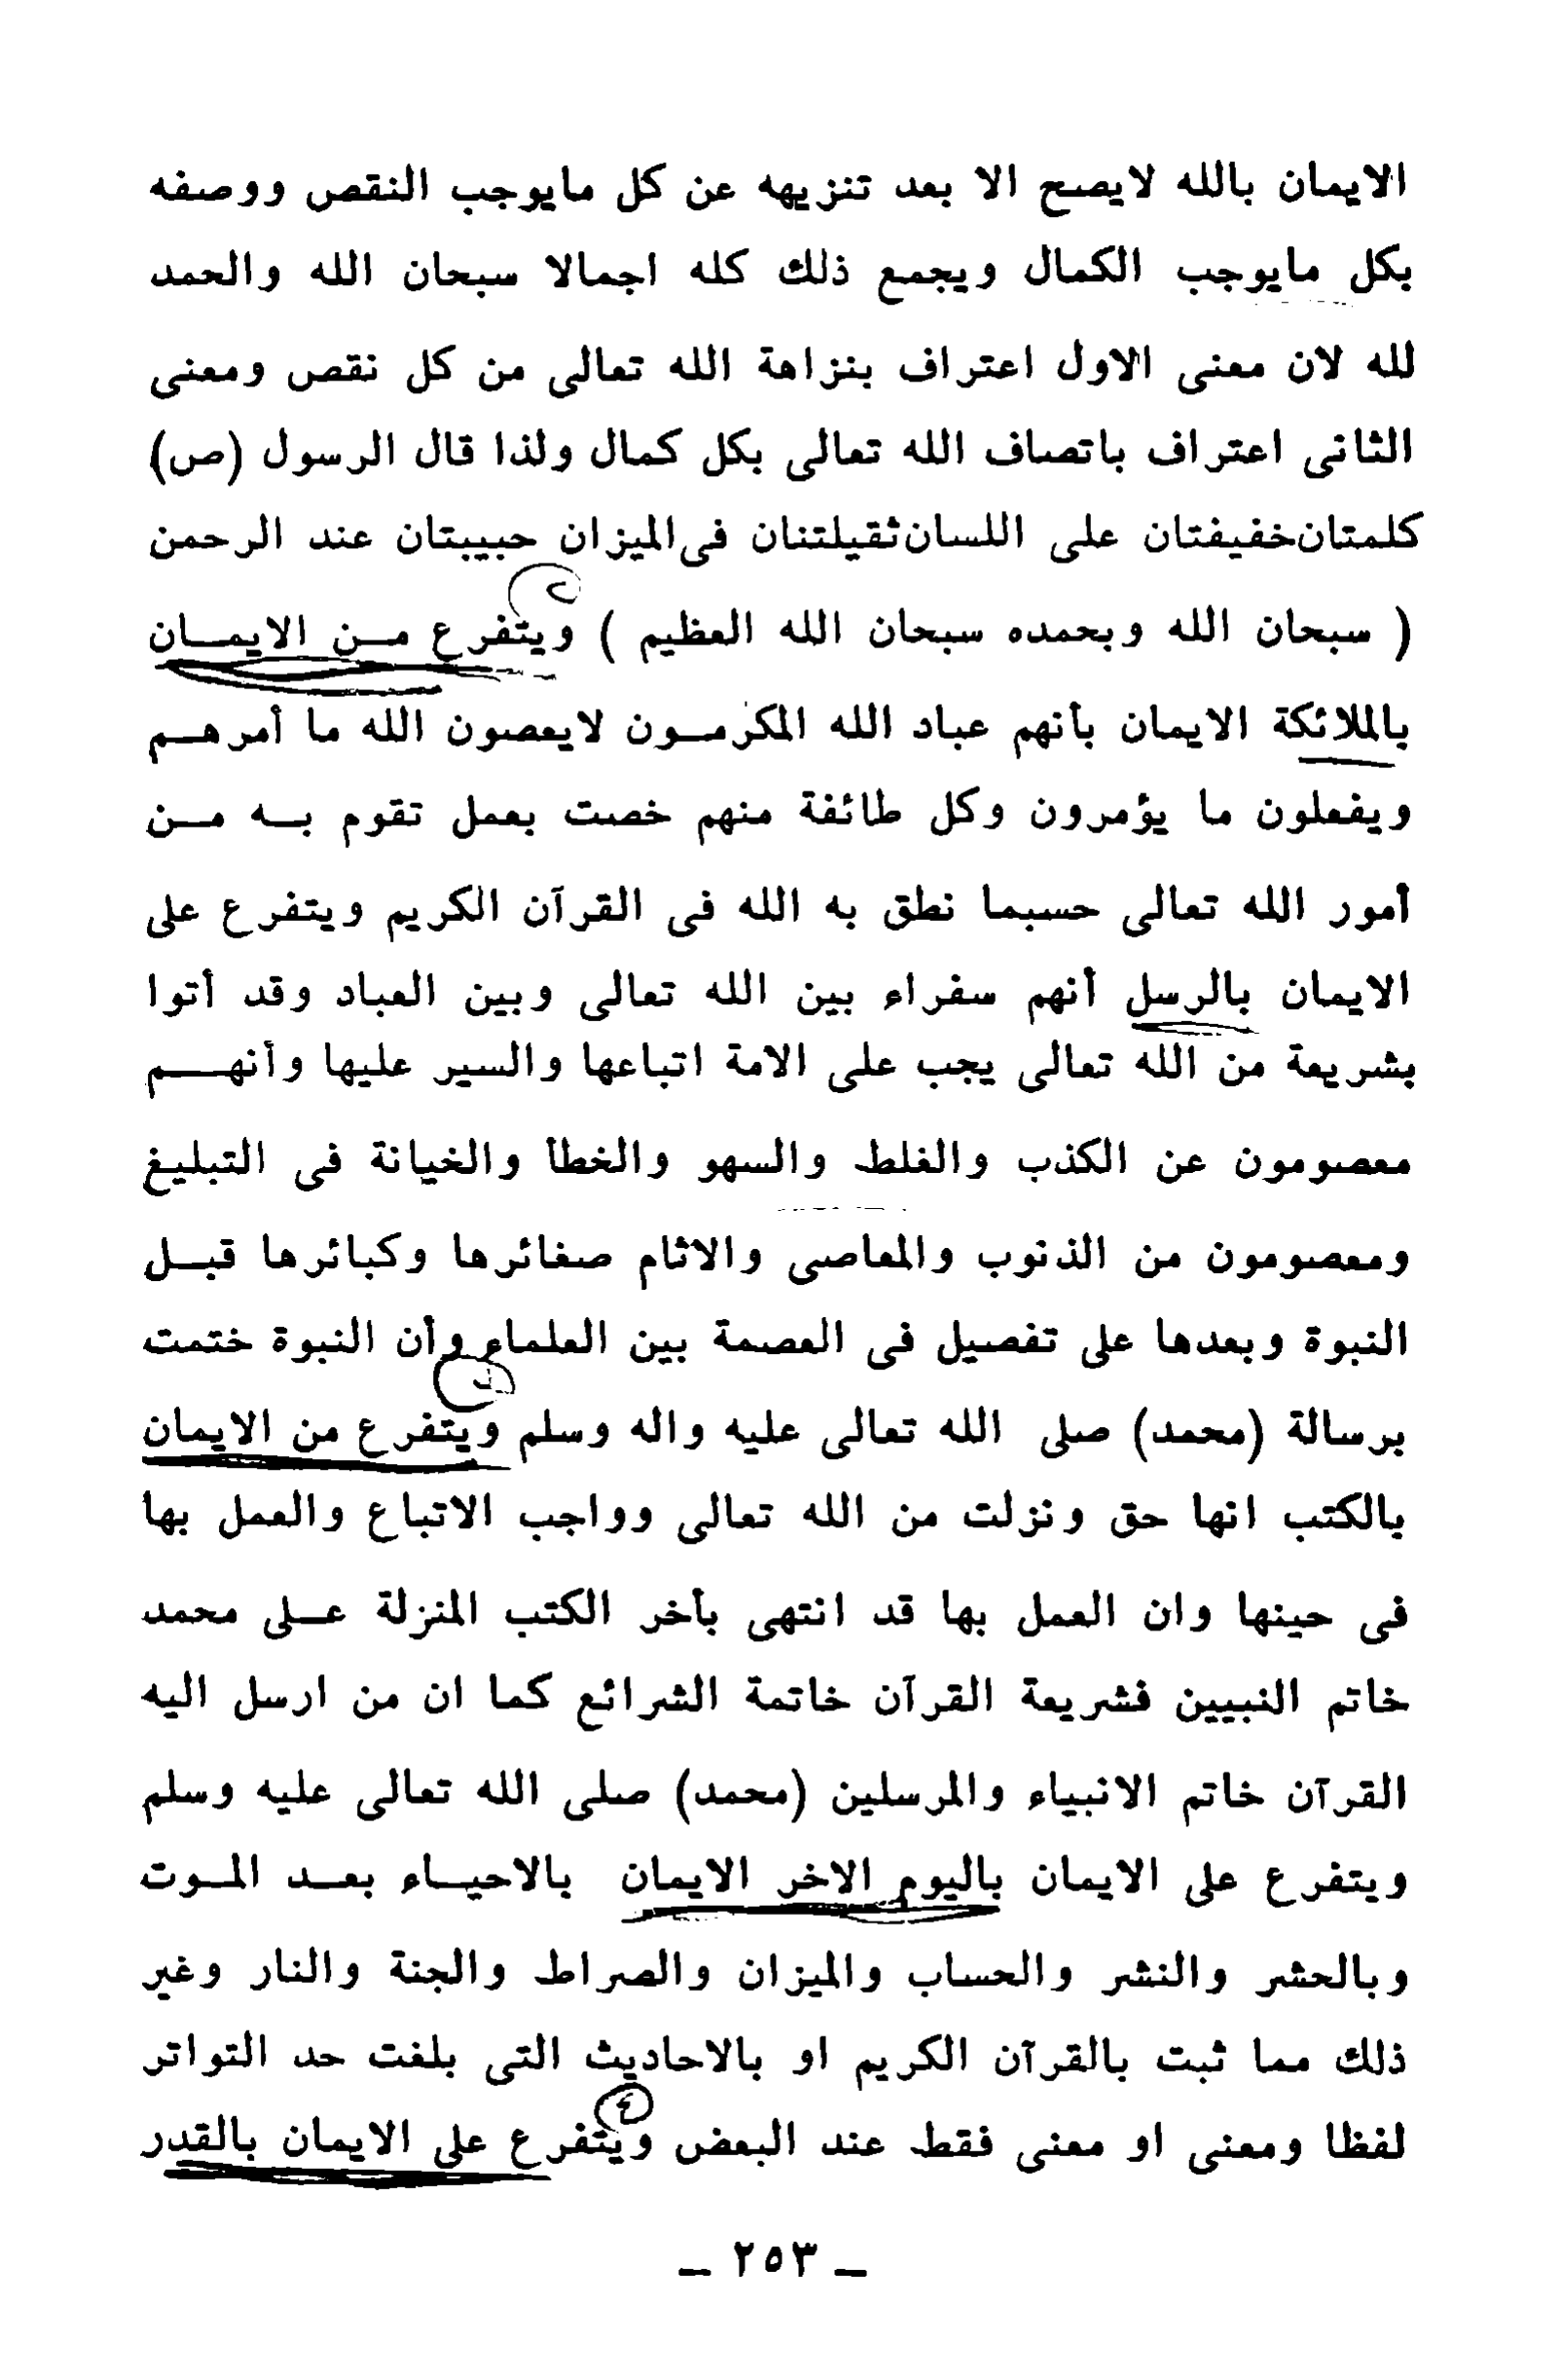 الايمان بالله لايصح الا بعد تنزيهه عن كل مايوجب النقص ووصفه
بكل مايوجب الكمال ويجمع ذلك كله اجمالا سبحان الله والحمد
لله لان معنى الاول اعتراف بنزاهة الله تعالى من كل نقص ومعنى
الثانى اعتراف باتصاف الله تعالى بكل كمال ولذا قال الرسول (ص)
كلمتان خفيفتان على اللسان ثقيلتنان فى الميزان حبيبتان عند الرحمن
( سبحان الله وبحمده سبحان الله العظيم ) ويتفرع مـن الايمـان
بالملائكة الايمان بأنهم عباد الله المكرمـون لايعصون الله ما أمرهـم
ويفعلون ما يؤمرون وكل طائفة منهم خصت بعمل تقوم بـه مـن
أمور الله تعالى حسبما نطق به الله فى القرآن الكريم ويتفرع على
الايمان بالرسل أنهم سفراء بين الله تعالى وبين العباد وقد أتوا
بشريعة من الله تعالى يجب على الامة اتباعها والسير عليها وأنهـم
معصومون عن الكذب والغلط والسهو والخطأ والخيانة فى التبليغ
ومعصومون من الذنوب والمعاصى والاثام صغائرها وكبائرها قبـل
النبوة وبعدها على تفصيل فى العصمة بين العلماء وأن النبوة ختمت
برسالة (محمد) صلى الله تعالى عليه واله وسلم ويتفرع من الايمان
بالكتب انها حق ونزلت من الله تعالى وواجب الاتباع والعمل بها
فى حينها وان العمل بها قد انتهى بأخر الكتب المنزلة عـلى محمد
خاتم النبيين فشريعة القرآن خاتمة الشرائع كما ان من ارسل اليه
القرآن خاتم الانبياء والمرسلين (محمد) صلى الله تعالى عليه وسلم
ويتفرع على الايمان باليوم الاخر الايمان بالاحيـاء بعـد المـوت
وبالحشر والنشر والحساب والميزان والصراط والجنة والنار وغير
ذلك مما ثبت بالقرآن الكريم او بالاحاديث التى بلغت حد التواتر
لفظا ومعنى او معنى فقط عند البعض ويتفرع على الايمان بالقدر
ـ ٢٥٣ ـ